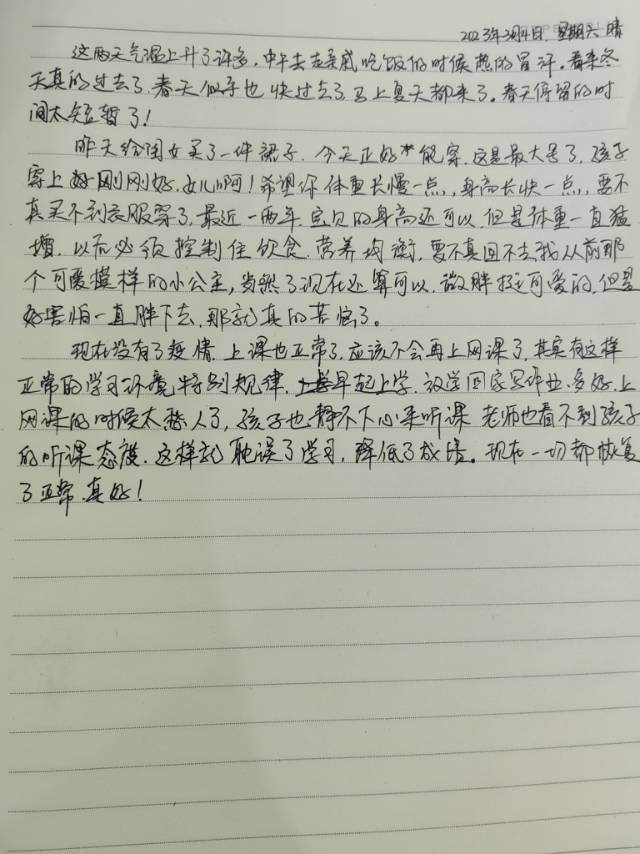 2023年3月4日. 星期六 晴
这两天气温上升了许多,中午去走亲戚吃饭的时候热的冒汗.看来冬
天真的过去了.春天似乎也快过去了.马上夏天都来了。春天停留的时
间太短暂了!
昨天给闺女买了一件裙子.今天正好能穿.这是最大号了,孩子
穿上好刚刚好.女儿啊!希望你体重长慢一点,身高长快一点,要不
真买不到衣服穿了.最近一两年.宝贝的身高还可以.但是体重一直猛
增.以后必须控制住饮食.营养均衡,要不真回不去我从前那
个可爱模样的小公主,当然了现在还算可以.微胖挺可爱的.但是
好害怕一直胖下去.那就真的苦恼了。
现在没有了疫情.上课也正常了.应该不会再上网课了,其实有这样
正常的学习环境特别规律.早起上学.放学回家写作业.多好.上
网课的时候太愁人了,孩子也静不下心来听课 老师也看不到孩子
的听课态度.这样就耽误了学习,降低了成绩。现在一切都恢复
了正常.真好!